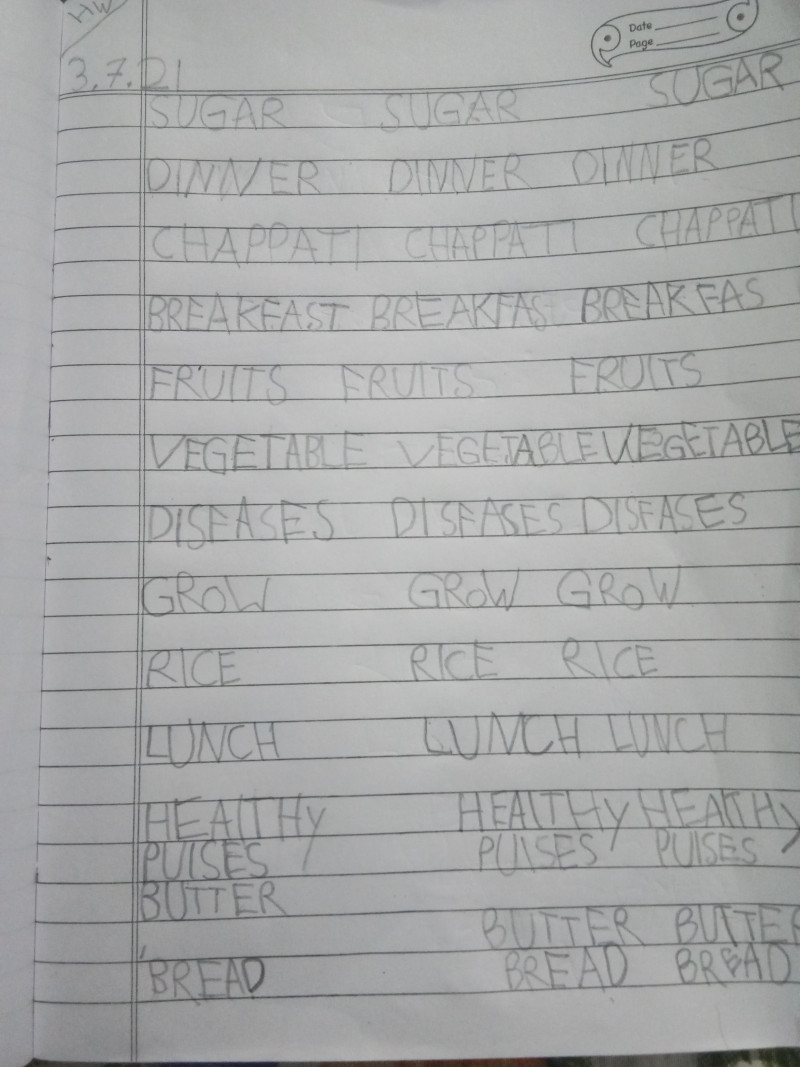 HW
Date
Page
3.7.21
SUGAR SUGAR SUGAR
DINNER DINNER DINNER
CHAPPATI CHAPPATI CHAPPATI
BREAKFAST BREAKFAS BREAKFAS
FRUITS FRUITS FRUITS
VEGETABLE VEGETABLE VEGETABLE
DISEASES DISEASES DISEASES
GROW GROW GROW
RICE RICE RICE
LUNCH LUNCH LUNCH
HEALTHy HEALTHy HEALTHy
PULSES PULSES PULSES
BUTTER
BUTTER BUTTER
BREAD BREAD BREAD